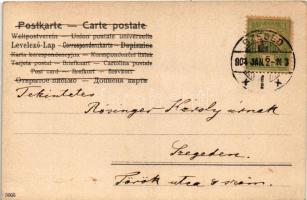 Postkarte — Carte postale
Weltpostverein — Union postale universelle
Levelező-Lap — Correspondenzkarte — Dopisnice
Karta korespondencyjna — Korespondenční lístek
Tarjeta postal — Briefkaart — Cartolina postale
Post card — Brefkort — Brevkort
Открытое письмо — Дописна карта
SZEGED
904 JAN
Tekintetes
Rósinger Károly úrnak
Szegeden.
Török utca 8 szám.